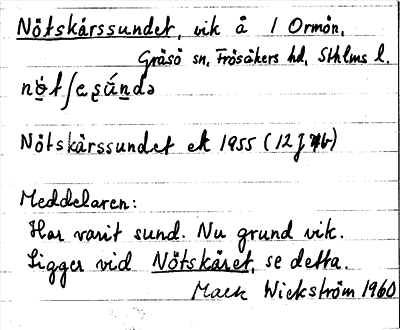 Nötskärssundet, vik å / Ormön,
Gräsö sn, Frösåkers hd, Sthlms l.
Nötskärssundet ek 1955 (12 J
Meddelaren:
Har varit sund. Nu grund vik.
Ligger vid Nötskäret, se detta.
Wickström 1960